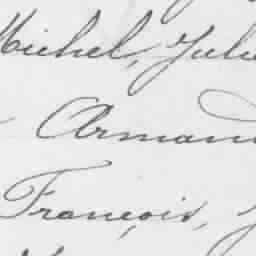 Michel, Jule
Armand
François,